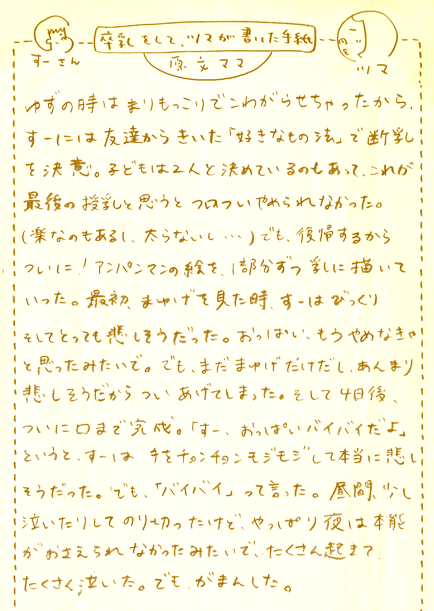 卒乳をして、ツマが書いた手紙
原文ママ
すーさん
ツマ
ゆずの時はまりもっこりでこわがらせちゃったから、
すーには友達からきいた「好きなもの法」で断乳
を決意。子どもは2人と決めているのもあって、これが
最後の授乳と思うとフロついやめられなかった。
(楽なのもあるし、太らないし…)でも、復帰するから
ついに!アンパンマンの絵を、1部分ずつ乳に描いて
いった。最初、まゆげを見た時、すーはびっくり
そしてとっても悲しそうだった。おっぱい、もうやめなきゃ
と思ったみたいで。でも、まだまゆげだけだし、あんまり
悲しそうだからついあげてしまった。そして4日後、
ついに口まで完成。「すー、おっぱいバイバイだよ」
というと、すーは手をチョンチョンモジモジして本当に悲し
そうだった。でも、「バイバイ」って言った。昼間、少し
泣いたりしてのり切ったけど、やっぱり夜は本能
がおさえられなかったみたいで、たくさん起きて、
たくさん泣いた。でも、がまんした。